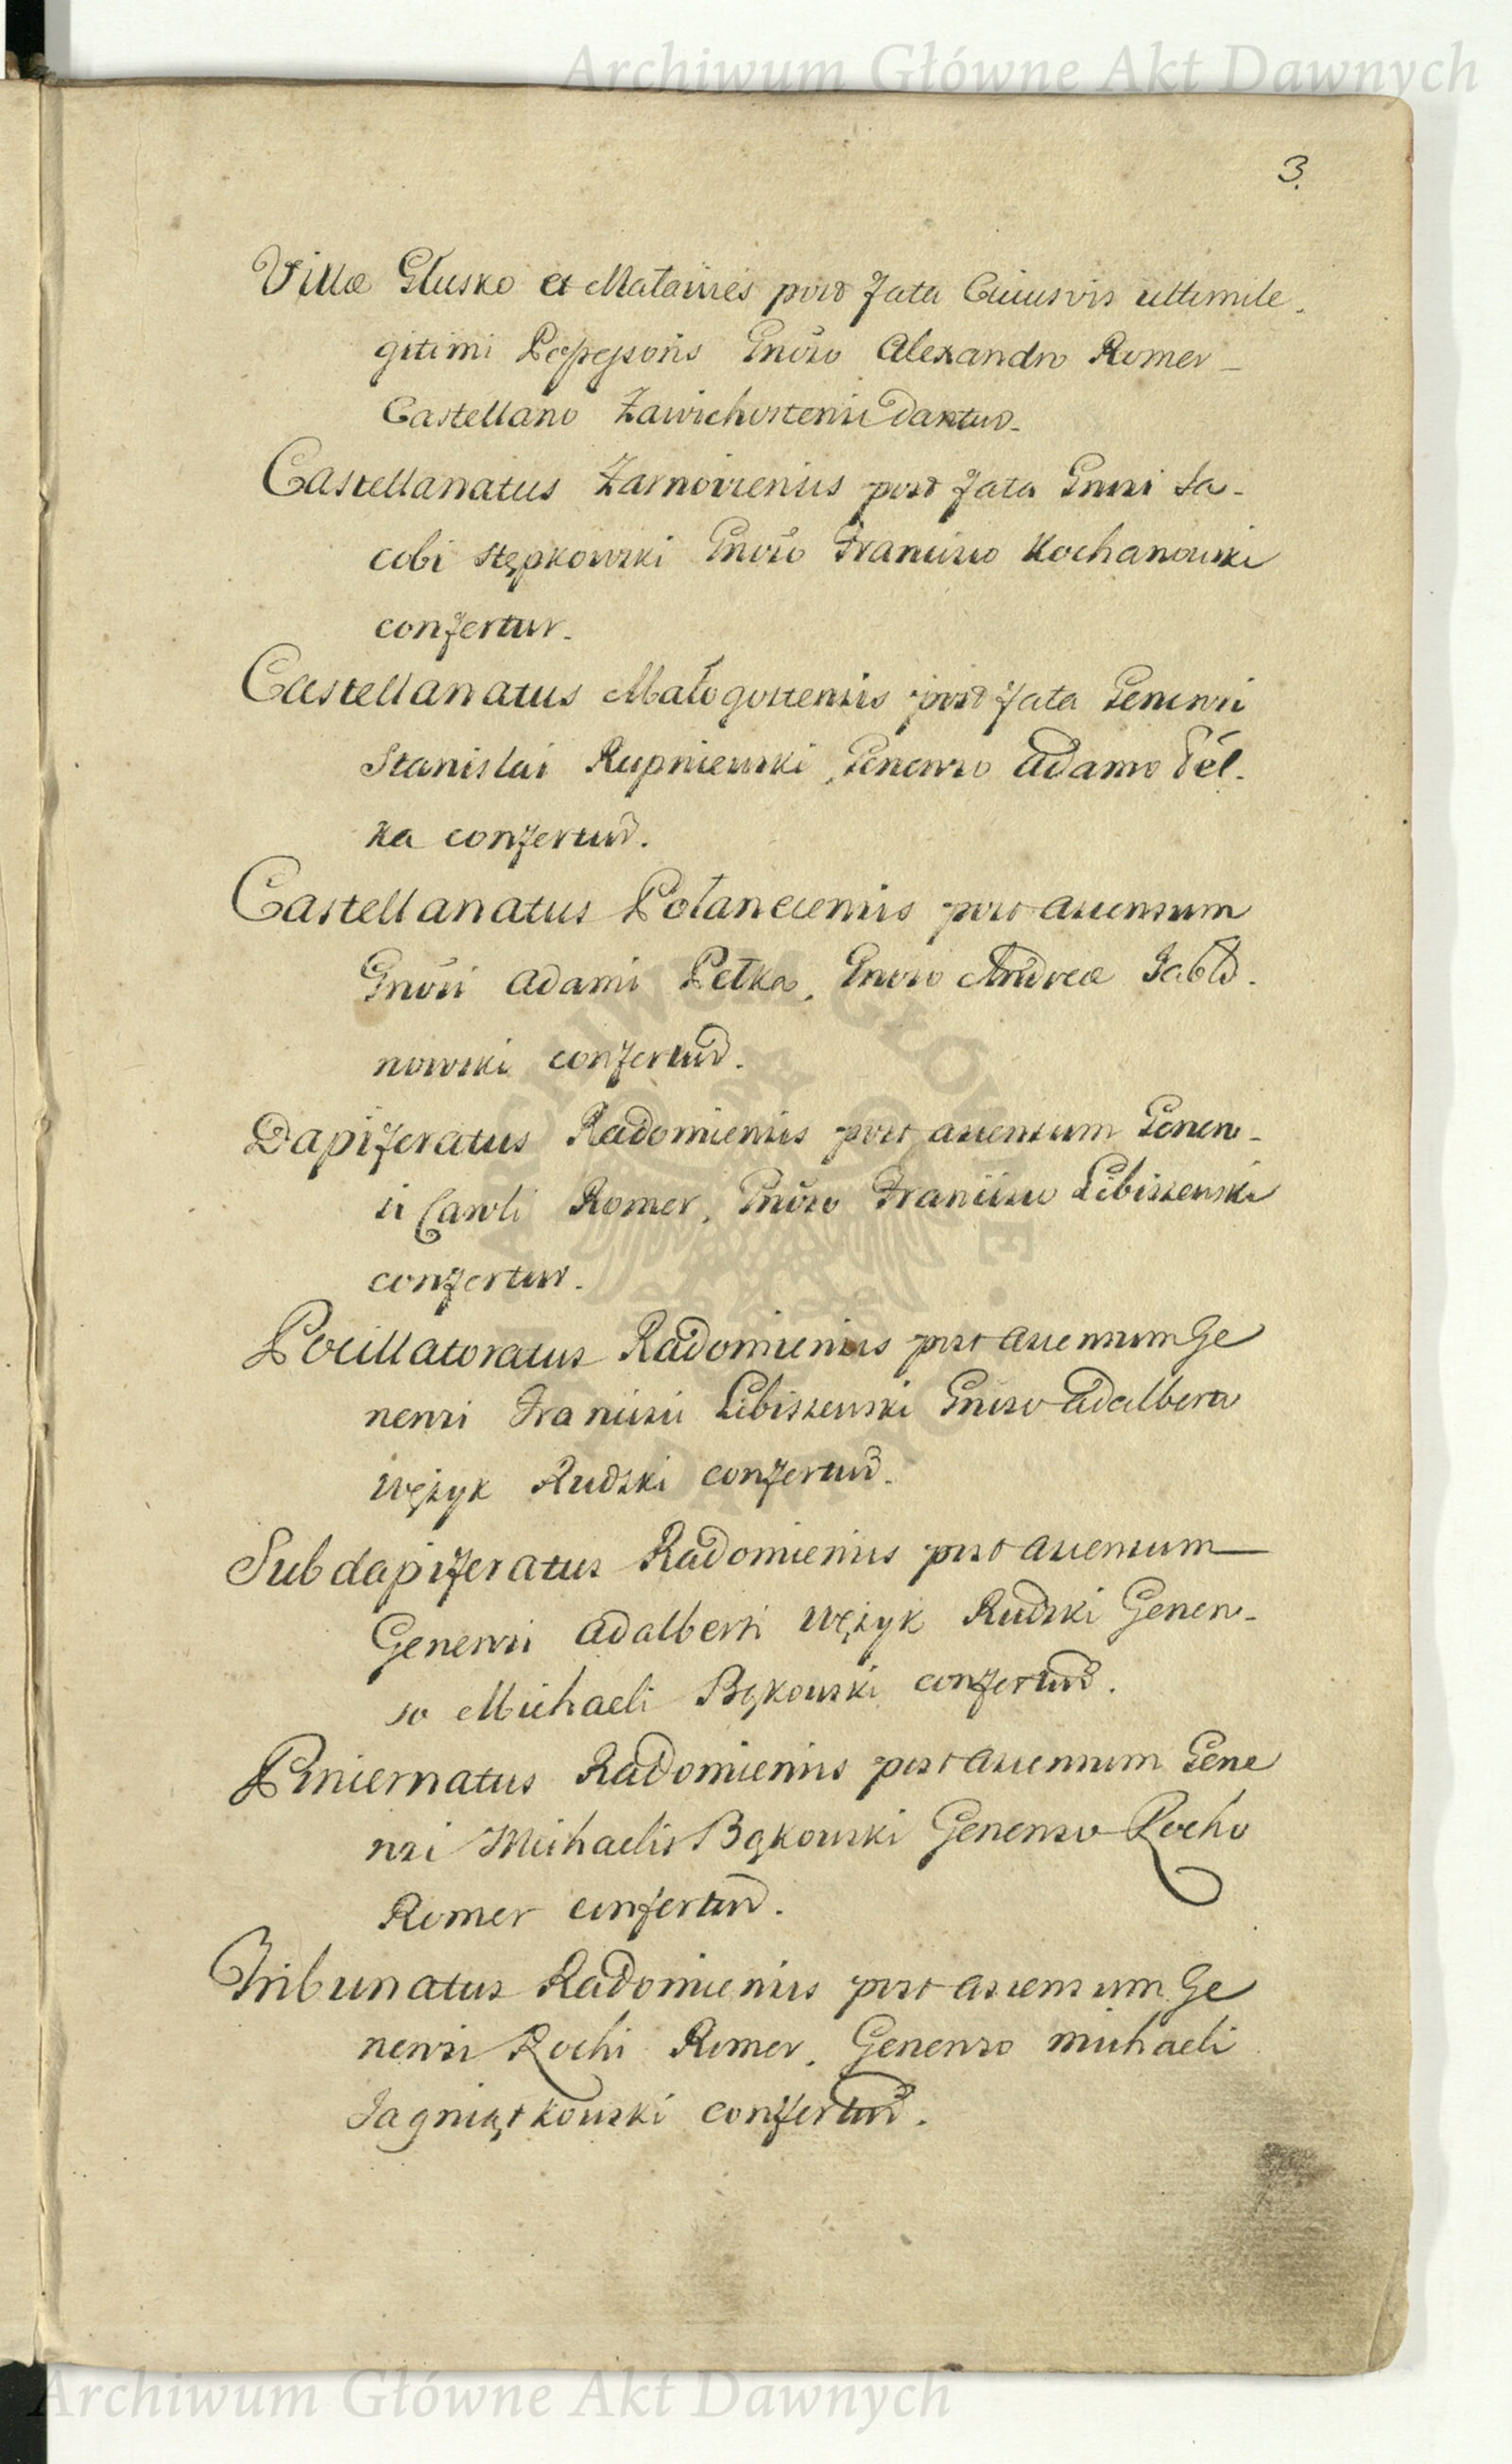 Archiwum Główne Akt Dawnych
3.
Villæ Głusko et Matawies post fata Cuiusvis ultimi le-
gitimi Poßeßoris Gnõso Alexandro Romer
Castellano Zawichostensi Dantur.
Castellanatus Zarnoviensis post fata Gnosi Ja-
cobi Stępkowski Gnõso Francisco Kochanowski
confertur.
Castellanatus Małogostensis post fata Generosi
Stanislai Rupniewski, Generoso Adamo Peł-
ka confertur.
Castellanatus Połanecensis post ascensum
Gnõsi Adami Pełka, Gnoso Andreæ Jabło-
nowski confertur.
Dapiferatus Radomiensis post ascensum Genero-
si Caroli Romer, Gnõso Francisco Libiszewski
confertur.
Pocillatoratus Radomiensis post ascensum Ge
nerosi Francisci Libiszewski Gnoso Adalberto
Wężyk Rudzki confertur.
Subdapiferatus Radomiensis post ascensum
Generosi Adalberti Wężyk Rudzki Genero-
so Michaeli Bąkowski confertur.
Pincernatus Radomiensis post ascensum Gene
rosi Michaelis Bąkowski Generoso Rocho
Romer confertur.
Tribunatus Radomiensis post ascensum Ge
nerosi Rochi Romer, Generoso Michaeli
Jagniątkowski confertur.
Archiwum Główne Akt Dawnych